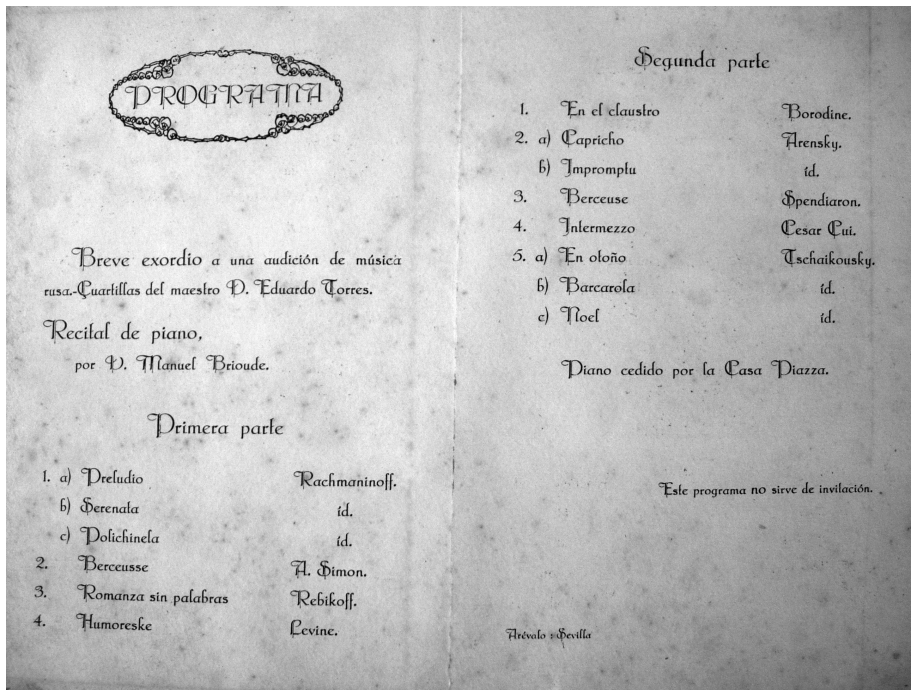 PROGRAMA
Breve exordio a una audición de música
rusa.-Cuartillas del maestro D. Eduardo Torres.
Recital de piano,
por D. Manuel Brioude.
Primera parte
1. a) Preludio Rachmaninoff.
b) Serenata íd.
c) Polichinela íd.
2. Berceusse A. Simon.
3. Romanza sin palabras Rebikoff.
4. Humoreske Levine.
Segunda parte
1. En el claustro Borodine.
2. a) Capricho Arensky.
b) Impromptu íd.
3. Berceuse Spendiaron.
4. Intermezzo Cesar Cui.
5. a) En otoño Tschaikousky.
b) Barcarola íd.
c) Noel íd.
Piano cedido por la Casa Piazza.
Este programa no sirve de invitación.
Arévalo : Sevilla